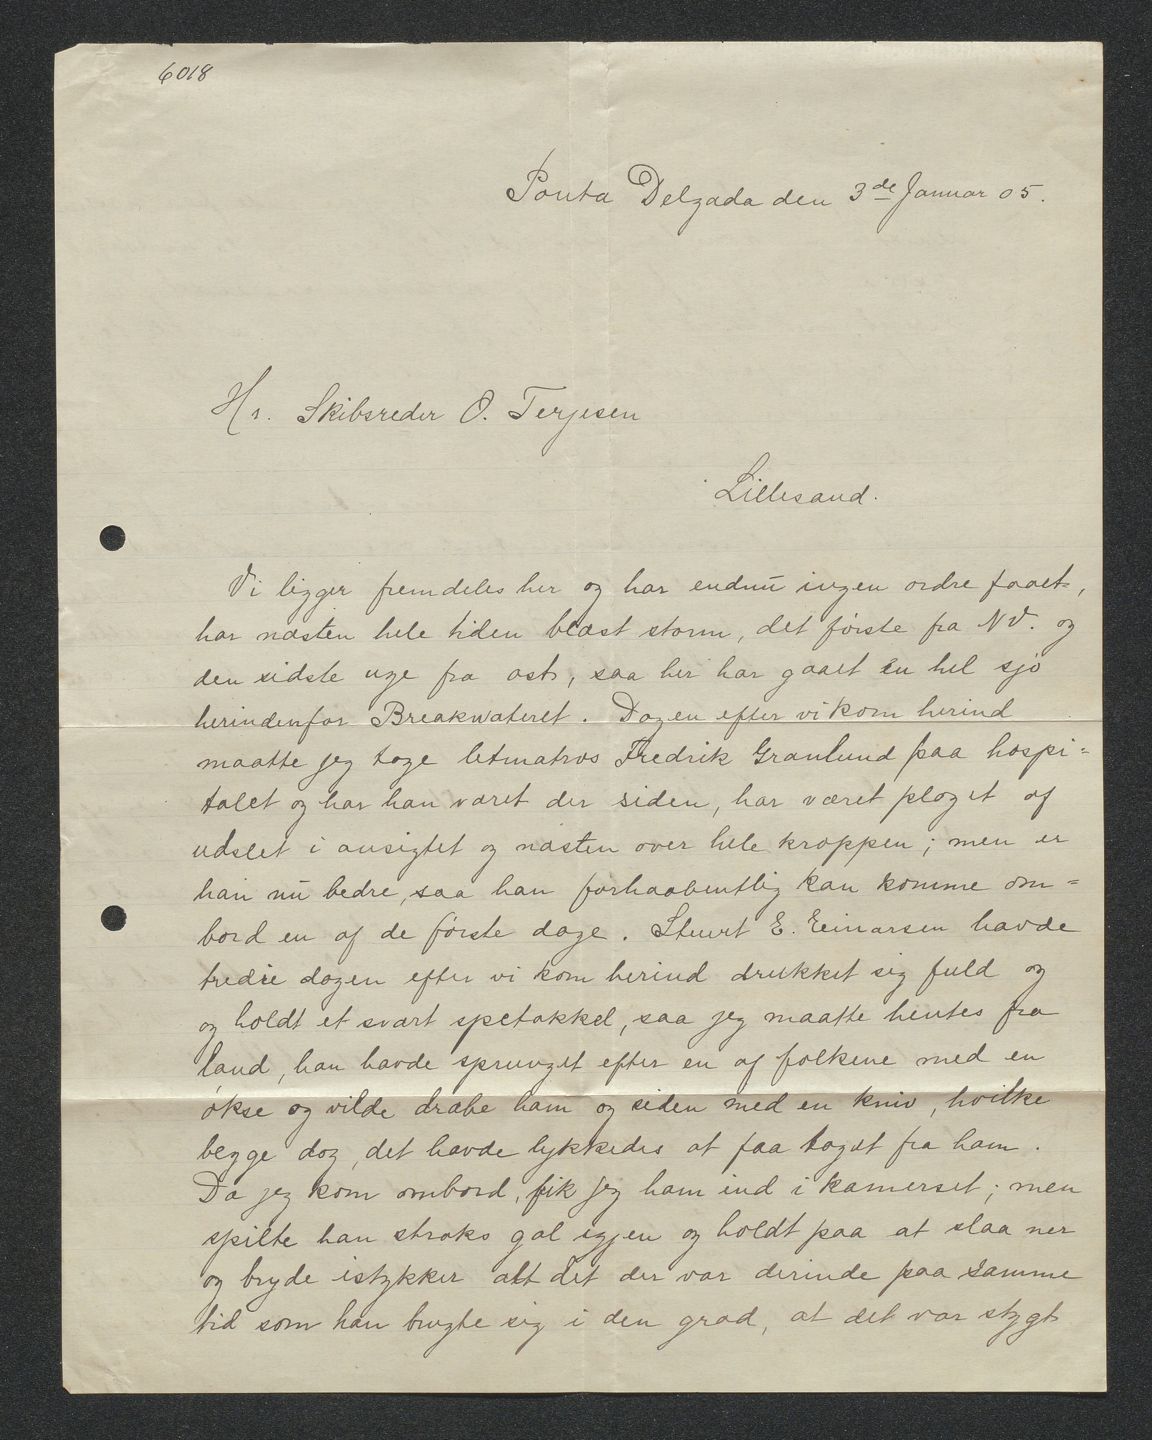 6018
Ponta Delgada den 3de Januar 05.
Hr. Skibsreder O. Terjesen
Lillesand.
Vi ligger fremdeles her og har endnu ingen ordre faaet,
har næsten hele tiden blæst storm, det første fra NV. og
den sidste uge fra ost, saa her har gaaet en hel sjø
herindenfor Breakwateret. Dagen efter vi kom herind
maatte jeg tage letmatros Fredrik Granlund paa hospi=
talet og har han været der siden, har været plaget af
udslet i ansigtet og næsten over hele kroppen; men er
han nu bedre, saa han forhaabentlig kan komme om=
bord en af de første dage. Stuert E. Einarsen havde
tredie dagen efter vi kom herind drukket sig fuld og
og holdt et svært spetakkel, saa jeg maatte hentes fra
land, han havde sprunget efter en af folkene med en
økse og vilde dræbe ham og siden med en kniv, hvilke
begge dog, det havde lykkedes at faa taget fra ham.
Da jeg kom ombord, fik jeg ham ind i kamerset; men
spilte han straks gal igjen og holdt paa at slaa ner
og bryde istykker alt det der var derinde paa samme
tid som han brugte sig i den grad, at det var stygt